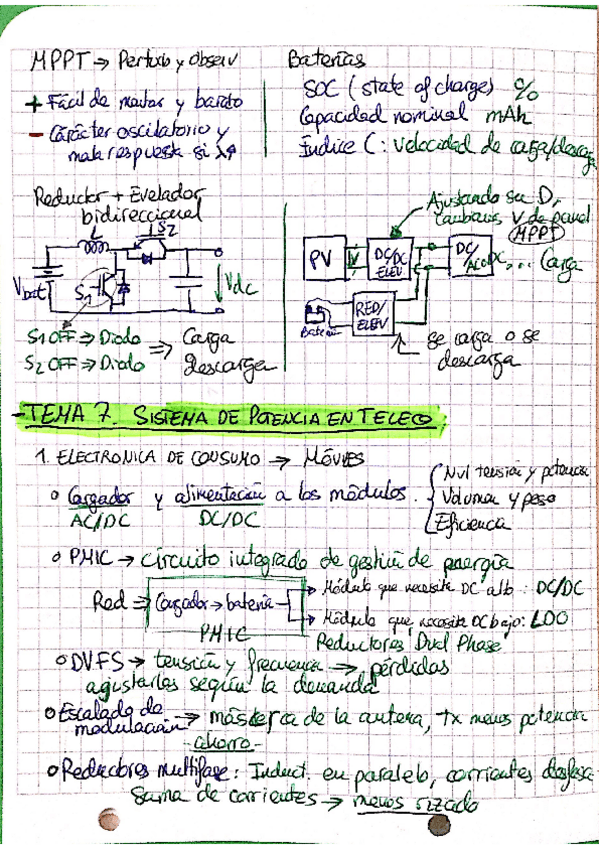 MPPT → Perturb y observ
+ Fácil de montar y barato
- Carácter oscilatorio y
mala respuesta si
Baterías
SOC (state of charge) %
Capacidad nominal mAh
Índice C: velocidad de carga/descarga
Reductor + Elevador
bidireccional
L S2
Vbat S1 Vdc
S1 OFF ⇒ Diodo ⇒ Carga
S2 OFF ⇒ Diodo Descarga
Ajustando su D,
cambiamos V de panel
(MPPT)
PV V DC/DC ELEV DC/AC o DC, ... Carga
Batería RED/ELEV
se carga o se
descarga
- TEMA 7. SISTEMA DE POTENCIA EN TELECO
1. ELECTRONICA DE CONSUMO → MÓVILES
o Cargador y alimentación a los módulos.
AC/DC DC/DC
Nvl tensión y potencia
Volumen y peso
Eficiencia
o PMIC → circuito integrado de gestión de energía
Red ⇒ Cargador → batería
PMIC
Módulo que necesite DC alto: DC/DC
Módulo que necesite DC bajo: LDO
Reductores "Dual Phase"
o DVFS → tensión y frecuencia → pérdidas
ajustarlas según la demanda
o Escalado de
modulación → más cerca de la antena, tx menos potencia
ahorro
o Reductores multifase: Induct. en paralelo, corrientes desfasa
Suma de corrientes → menos rizado